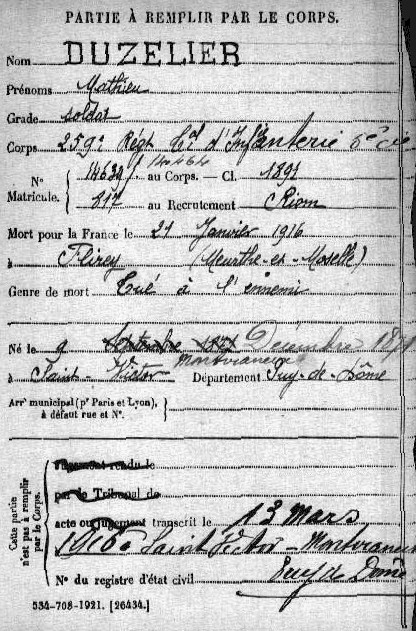 PARTIE À REMPLIR PAR LE CORPS.
Nom DUZELIER
Prénoms Mathieu
Grade soldat
Corps 259e Régt tal d'Infanterie 8e cie
14464
N° 14639 au Corps. — Cl. 1891
Matricule. 817 au Recrutement Riom
Mort pour la France le 21 Janvier 1916
à Flirey (Meurthe-et-Moselle)
Genre de mort Tué à l'ennemi
Né le 9 Septembre 1871 Décembre 1871
Montvianeix
à Saint-Victor Département Puy-de-Dôme
Arrt municipal (pr Paris et Lyon),
à défaut rue et N°.
Cette partie
n'est pas à remplir
par le Corps.
Jugement rendu le
par le Tribunal de
acte ou jugement transcrit le 13 Mars
1916 à Saint Victor - Montvianeix
Puy de Dôme
N° du registre d'état civil
534-708-1921. [26434.]